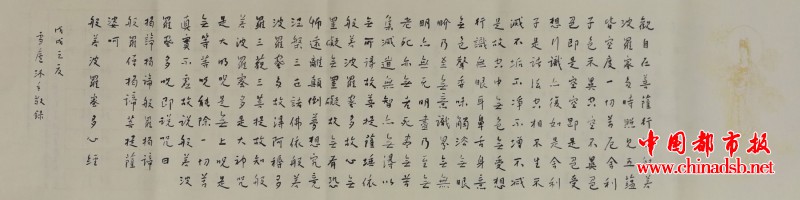 觀自在菩薩行深般若
波羅蜜多時照見五蘊
皆空度一切苦厄舍利
子色不異空空不異色
色即是空空即是色受
想行識亦復如是舍利
子是諸法空相不生不
滅不垢不淨不增不減
是故空中無色無受想
行識無眼耳鼻舌身意
無色聲香味觸法無眼
界乃至無意識界無無
明亦無無明盡乃至無
老死亦無老死盡無苦
集滅道無智亦無得以
無所得故菩提薩埵依
般若波羅蜜多故心無
罣礙無罣礙故無有恐
怖遠離顛倒夢想究竟
涅槃三世諸佛依般若
波羅蜜多故得阿耨多
羅三藐三菩提故知般
若波羅蜜多是大神咒
是大明咒是無上咒是
無等等咒能除一切苦
真實不虛故說般若波
羅蜜多咒即說咒曰
揭諦揭諦般羅揭諦
般羅僧揭諦菩提薩
婆呵
般若波羅蜜多心經
戊戌之夏
沐手敬錄
中国都市报
www.chinadsb.net